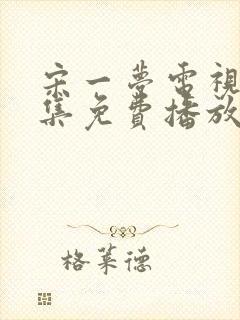 宋一夢電視
集免費播放
格萊德